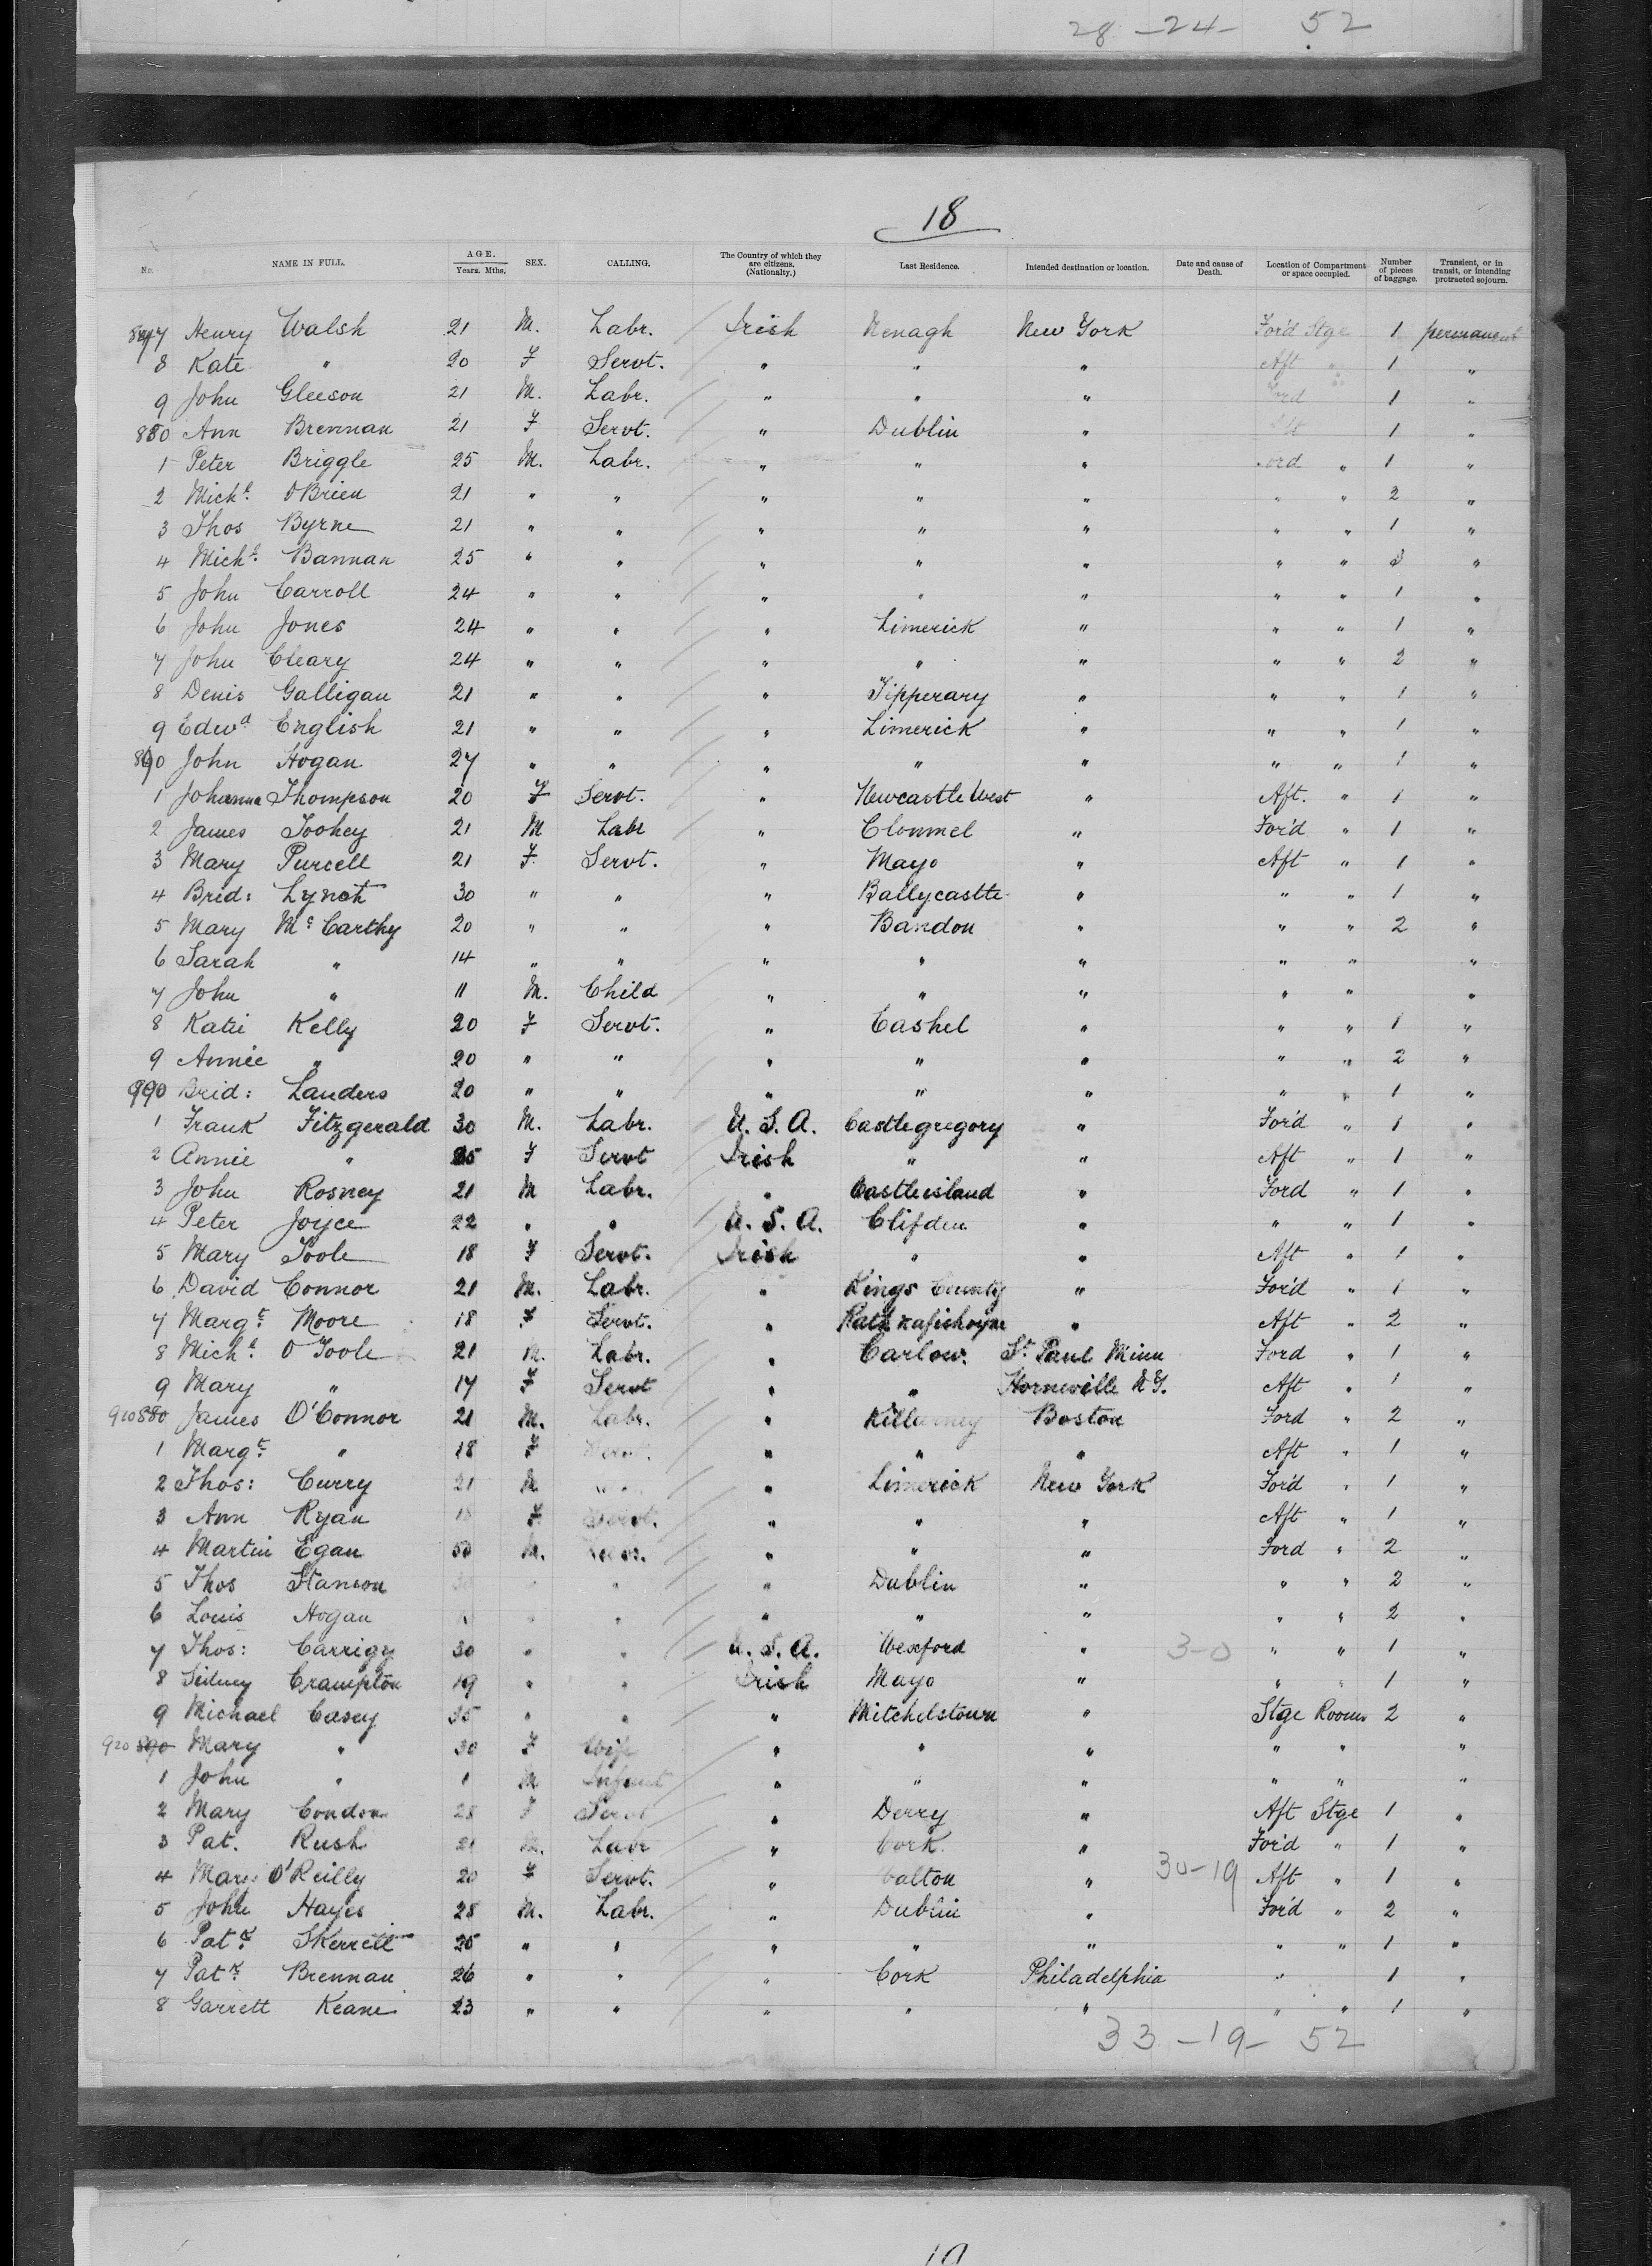 28 - 24 - 52
18
No. NAME IN FULL. AGE. Years. Mths. SEX. CALLING. The Country of which they are citizens. (Nationality.) Last Residence. Intended destination or location. Date and cause of Death. Location of Compartment or space occupied. Number of pieces of baggage. Transient, or in transit, or intending protracted sojourn.
7 Henry Walsh 21 M. Labr. Irish Nenagh New York For'd Stge 1 permanent
8 Kate " 20 F Servt. " " " Aft " 1 "
9 John Gleeson 21 M. Labr. " " " Ford 1 "
880 Ann Brennan 21 F Servt. " Dublin " 1 "
1 Peter Briggle 25 M. Labr. " " " ord " 1 "
2 Michl. O'Brien 21 " " " " " " " 2 "
3 Thos Byrne 21 " " " " " " " 1 "
4 Michl. Bannan 25 " " " " " " " 3 "
5 John Carroll 24 " " " " " " " 1 "
6 John Jones 24 " " " Limerick " " " 1 "
7 John Cleary 24 " " " " " " " 2 "
8 Denis Galligan 21 " " " Tipperary " " " 1 "
9 Edwd English 21 " " " Limerick " " " 1 "
890 John Hogan 27 " " " " " " " 1 "
1 Johanna Thompson 20 F Servt. " Newcastle West " Aft. " 1 "
2 James Toohey 21 M Labr " Clonmel " For'd " 1 "
3 Mary Purcell 21 F. Servt. " Mayo " Aft " 1 "
4 Brid: Lynch 30 " " " Ballycastle " " " 1 "
5 Mary McCarthy 20 " " " Bandon " " " 2 "
6 Sarah " 14 " " " " " " " "
7 John " 11 M. Child " " " " " "
8 Katie Kelly 20 F Servt. " Cashel " " " 1 "
9 Annie " 20 " " " " " " " 2 "
990 Brid: Landers 20 " " " " " " " 1 "
1 Frank Fitzgerald 30 M. Labr. U.S.A. Castlegregory " For'd " 1 "
2 Annie " 25 F Servt Irish " " Aft " 1 "
3 John Rosney 21 M Labr. " Castleisland " Ford " 1 "
4 Peter Joyce 22 " " U.S.A. Clifden " " " 1 "
5 Mary Toole 18 F Servt. Irish " " Aft " 1 "
6 David Connor 21 M. Labr. " Kings County " For'd " 1 "
7 Margt. Moore 18 F Servt. " " Aft " 2 "
8 Michl. O'Toole 21 M. Labr. " Carlow. St. Paul Minn Ford " 1 "
9 Mary " 17 F Servt " " Horneville N.Y. Aft " 1 "
910 880 James O'Connor 21 M. Labr. " Killarney Boston Ford " 2 "
1 Margt. " 18 F Servt. " " " Aft " 1 "
2 Thos: Curry 21 M " Limerick New York For'd " 1 "
3 Ann Ryan 18 F Servt. " " " Aft " 1 "
4 Martin Egan 50 M. " " " Ford " 2 "
5 Thos Stanson 30 " " " Dublin " " " 2 "
6 Louis Hogan " " " " " " " 2 "
7 Thos: Carrigy 30 " " U.S.A. Wexford " 3-0 " " 1 "
8 Sidney Crampton 19 " " Irish Mayo " " " 1 "
9 Michael Casey 35 " " " Mitchelstown " Stge Rooms 2 "
920 890 Mary " 30 F Wife " " " " " "
1 John " 1 M Infant " " " " " "
2 Mary Condon 28 F Servt " Derry " Aft Stge 1 "
3 Pat. Rush 21 M. Labr " Cork. " For'd " 1 "
4 Mary O'Reilly 20 F Servt. " Calton " 30-19 Aft " 1 "
5 John Hayes 28 M. Labr. " Dublin " For'd " 2 "
6 Patk. Skerrett 25 " " " " " " " 1 "
7 Patk. Brennan 26 " " " Cork Philadelphia " 1 "
8 Garrett Keane 23 " " " " " " " 1 "
33 - 19 - 52